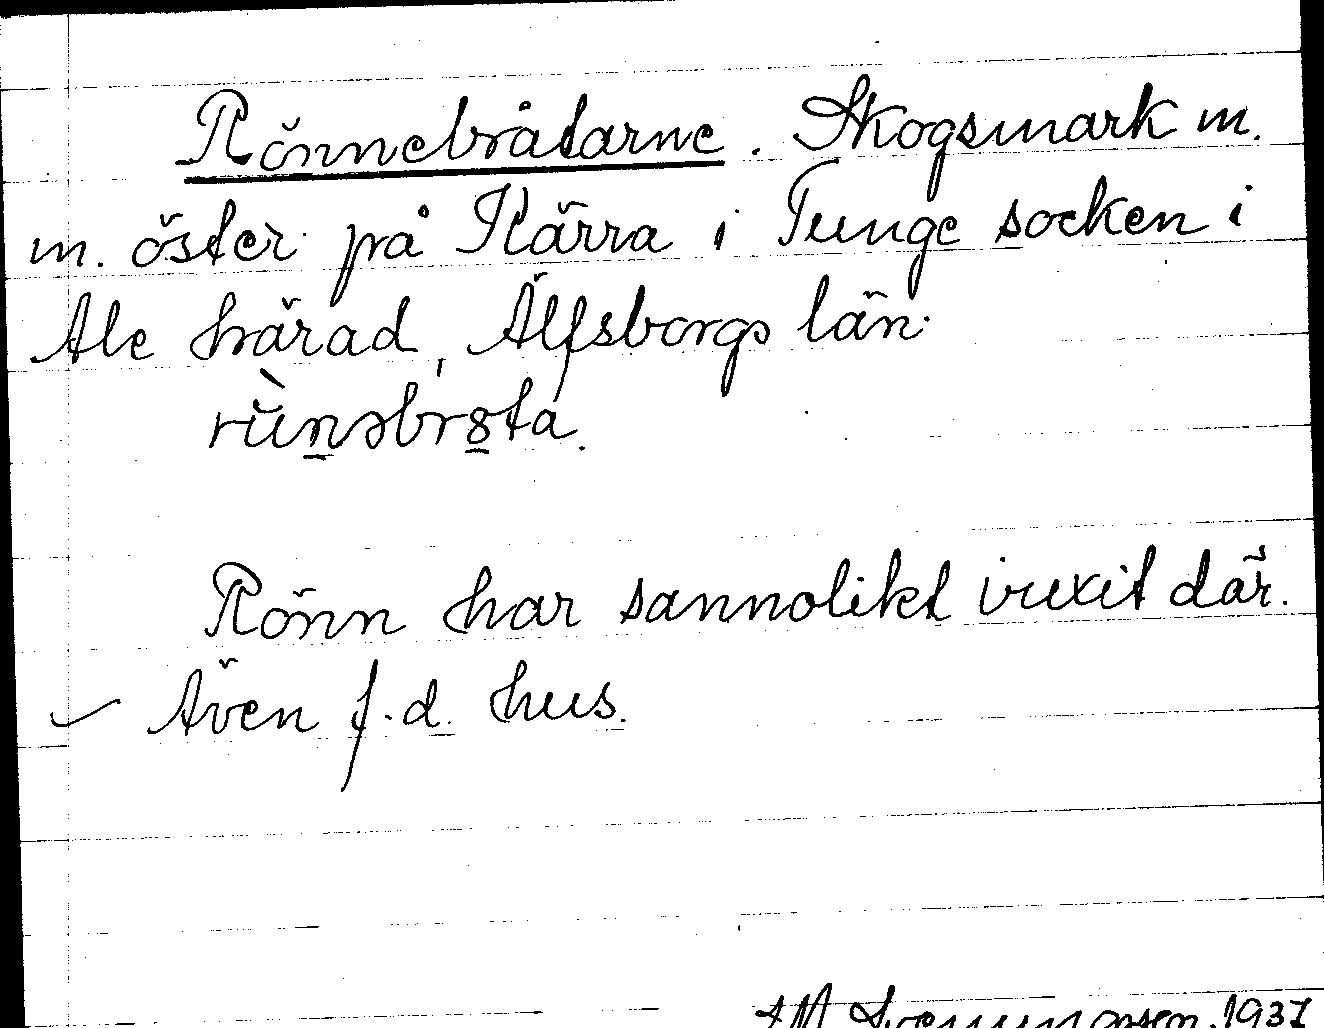 Rönnebråtarne. Skogsmark m.
m. öster på Kärra i Tunge socken i
Ale härad, Älfsborgs län.
Rönn har sannolikt vuxit där.
Även f.d. hus.
1937